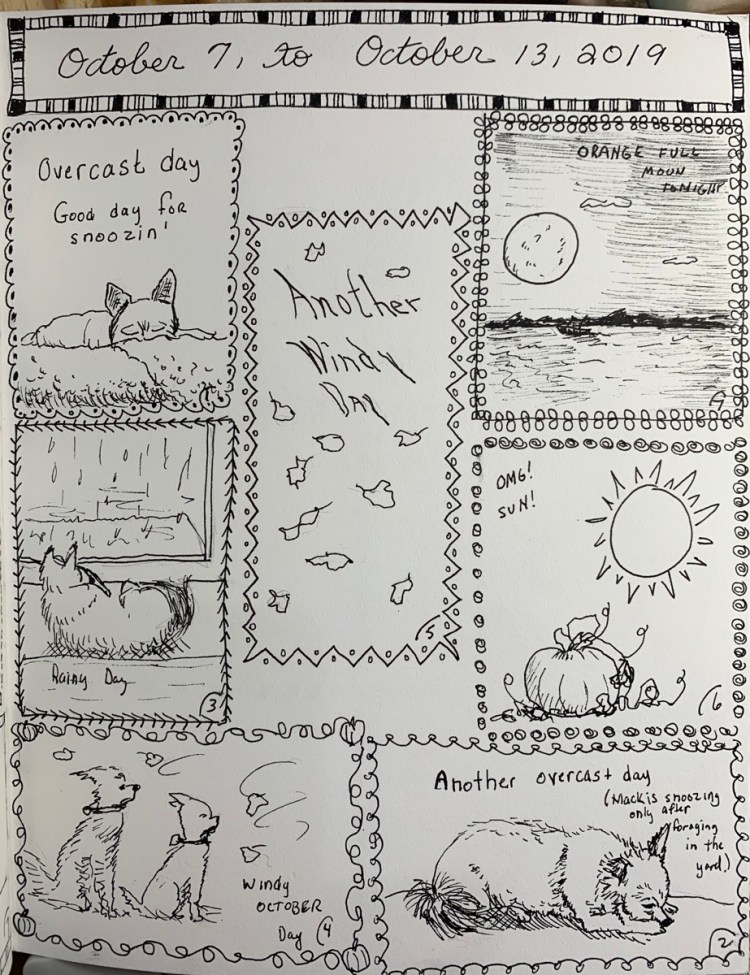 October 7, to October 13, 2019
Overcast day
Good day for
snoozin'
Another
Windy
DAY
5
ORANGE FULL
MOON
TONIGHT
Rainy Day
3
OMG!
SUN!
6
Windy
OCTOBER
Day 4
Another overcast day
(Mack is snoozing
only after
foraging
in the
yard.)
2